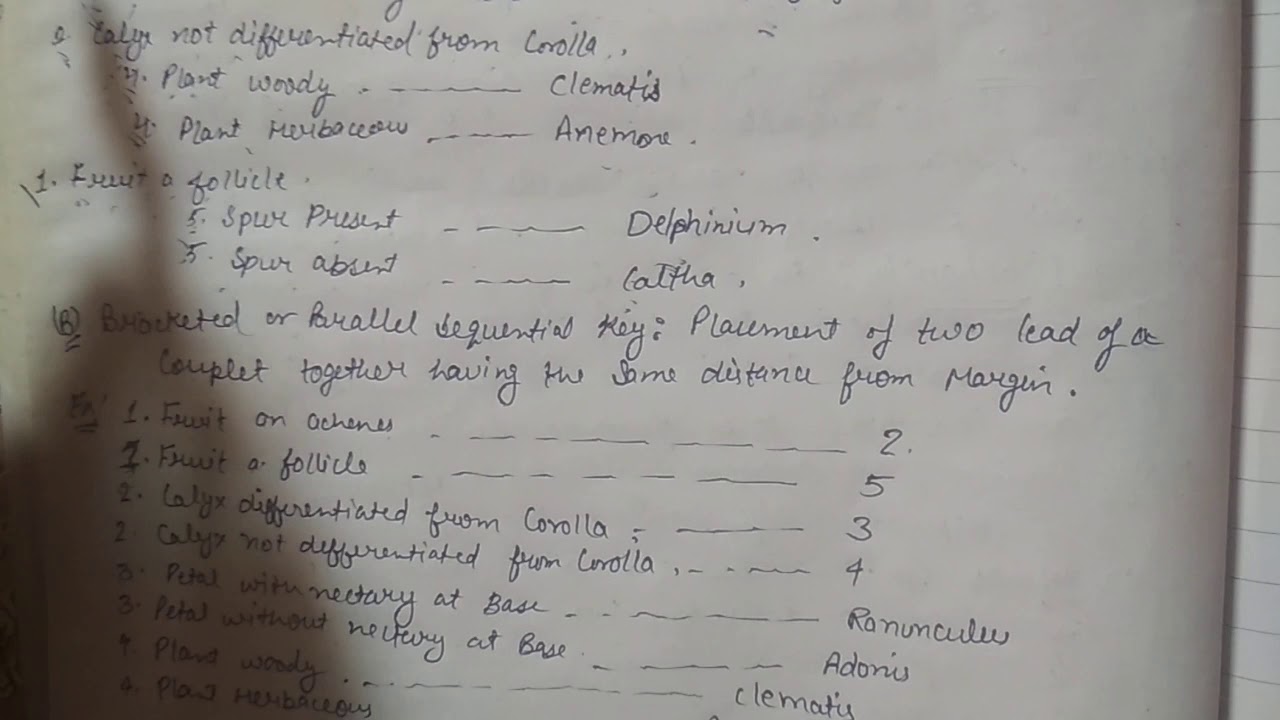 2 Calyx not differentiated from Corolla.
4. Plant woody . - — — — Clematis
4. Plant Herbaceous . — — — Anemone.
1. Fruit a follicle.
5. Spur Present - - — — Delphinium.
5. Spur absent - - — — Caltha.
(B) Bracketed or Parallel Sequential Key: Placement of two lead of a
Couplet together having the Same distance from Margin.
Ex: 1. Fruit an achenes - — — — — — — 2.
1. Fruit a follicle . - — — — — — 5
2. Calyx differentiated from Corolla - — — — 3
2. Calyx not defferentiated from Corolla . - - — — 4
3. Petal with nectary at Base - . — — — — Ranunculus
3. Petal without nectary at Base . — — — — Adonis
4. Plant woody . - — — — — — — Clematis
4. Plant Herbaceous